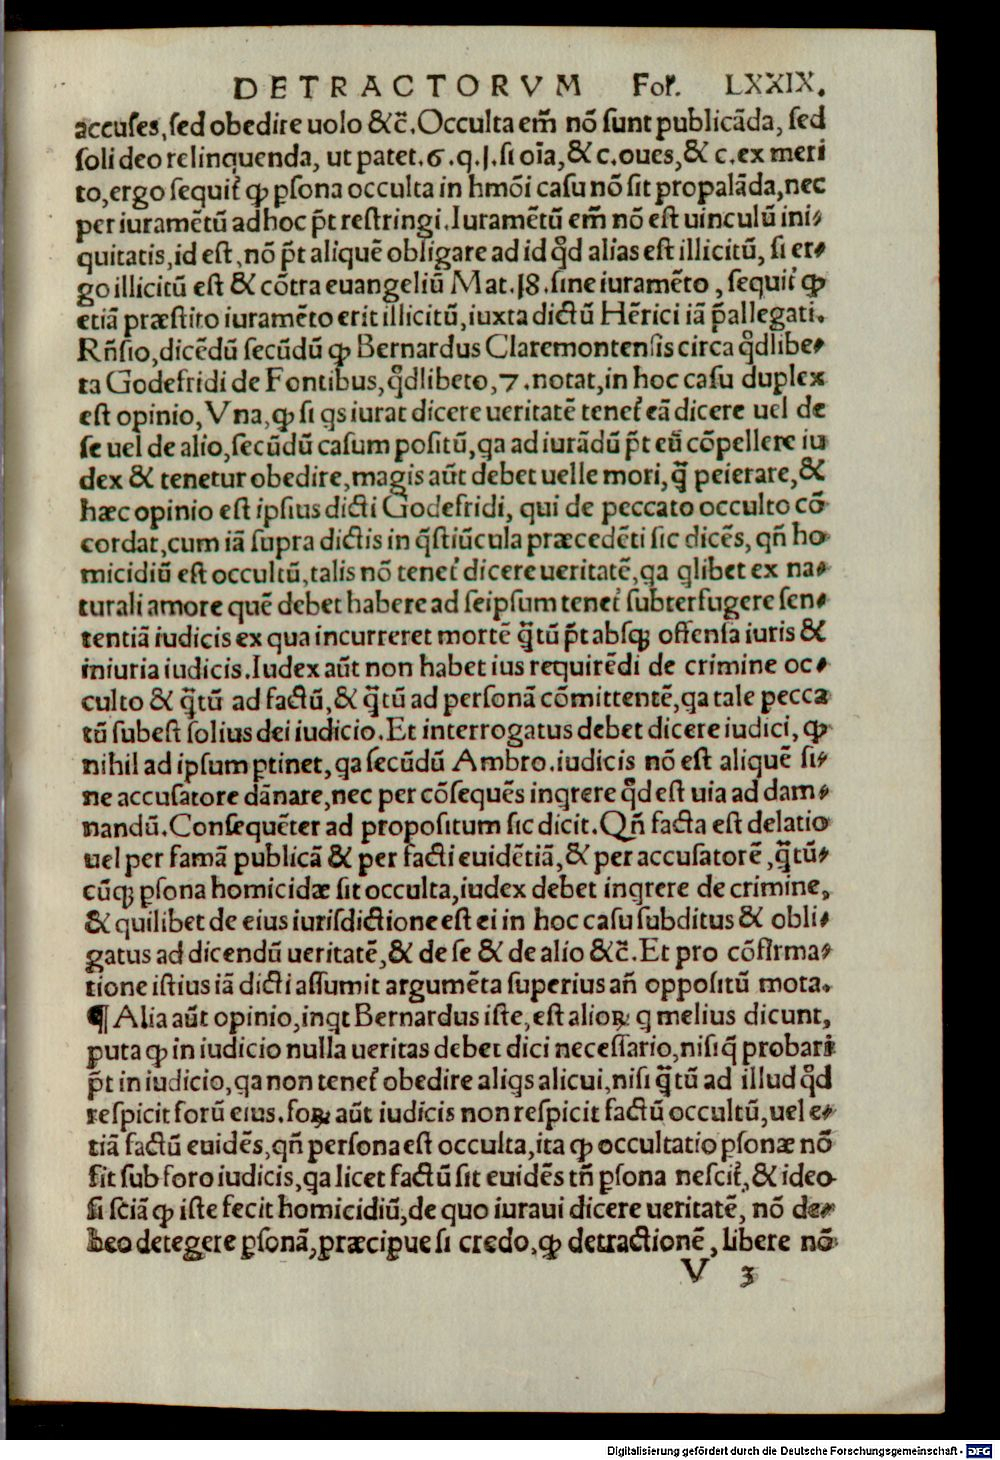 DETRACTORVM Fol. LXXIX.
accuses, sed obedire uolo &c̃. Occulta em̃ nõ sunt publicãda, sed
soli deo relinquenda, ut patet. 6. q. J. si oĩa, & c. oues, & c. ex meri
to, ergo sequit᷑ ꝙ ꝑsona occulta in hmõi casu nõ sit propalãda, nec
per iuramẽtũ ad hoc p̃t restringi. Iuramẽtũ em̃ nõ est uinculũ ini-
quitatis, id est, nõ p̃t aliquẽ obligare ad id qd̃ alias est illicitũ, si er-
go illicitũ est & cõtra euangeliũ Mat. J8. sine iuramẽto, sequit᷑ ꝙ
etiã præstito iuramẽto erit illicitũ, iuxta dictũ Hẽrici iã p̃allegati.
Rñsio, dicẽdũ secũdũ ꝙ Bernardus Claremontensis circa qd̃libe-
ta Godefridi de Fontibus, qd̃libeto, 7. notat, in hoc casu duplex
est opinio, Vna, ꝙ si qs iurat dicere ueritatẽ tenet᷑ eã dicere uel de
se uel de alio, secũdũ casum positũ, qa ad iurãdũ p̃t eũ cõpellere iu
dex & tenetur obedire, magis aũt debet uelle mori, q̃ peierare, &
hæc opinio est ipsius dicti Godefridi, qui de peccato occulto cõ
cordat, cum iã supra dictis in q̃stiũcula præcedẽti sic dicẽs, qñ ho
micidiũ est occultũ, talis nõ tenet᷑ dicere ueritatẽ, qa qlibet ex na-
turali amore quẽ debet habere ad seipsum tenet᷑ subterfugere sen-
tentiã iudicis ex qua incurreret mortẽ q̃tũ p̃t absqꝫ offensa iuris &
iniuria iudicis. Iudex aũt non habet ius requirẽdi de crimine oc-
culto & q̃tũ ad factũ, & q̃tũ ad personã cõmittentẽ, qa tale pecca
tũ subest solius dei iudicio. Et interrogatus debet dicere iudici, ꝙ
nihil ad ipsum ꝑtinet, qa secũdũ Ambro. iudicis nõ est aliquẽ si-
ne accusatore dãnare, nec per cõsequẽs inqrere qd̃ est uia ad dam-
nandũ. Consequẽter ad propositum sic dicit. Qñ facta est delatio
uel per famã publicã & per facti euidẽtiã, & per accusatorẽ, q̃tũ-
cũqꝫ ꝑsona homicidæ sit occulta, iudex debet inqrere de crimine,
& quilibet de eius iurisdictione est ei in hoc casu subditus & obli-
gatus ad dicendũ ueritatẽ, & de se & de alio &c̃. Et pro cõfirma-
tione istius iã dicti assumit argumẽta superius añ oppositũ mota.
¶ Alia aũt opinio, inqt Bernardus iste, est alioꝝ q melius dicunt,
puta ꝙ in iudicio nulla ueritas debet dici necessario, nisi q̃ probari
p̃t in iudicio, qa non tenet᷑ obedire aliqs alicui, nisi q̃tũ ad illud qd̃
respicit forũ eius. foꝝ aũt iudicis non respicit factũ occultũ, uel e-
tiã factũ euidẽs, qñ persona est occulta, ita ꝙ occultatio ꝑsonæ nõ
sit sub foro iudicis, qa licet factũ sit euidẽs tñ ꝑsona nescit᷑, & ideo
si sciã ꝙ iste fecit homicidiũ, de quo iuraui dicere ueritatẽ, nõ de-
beo detegere ꝑsonã, præcipue si credo, ꝙ detractionẽ, libere nõ
V 3
Digitalisierung gefördert durch die Deutsche Forschungsgemeinschaft - DFG